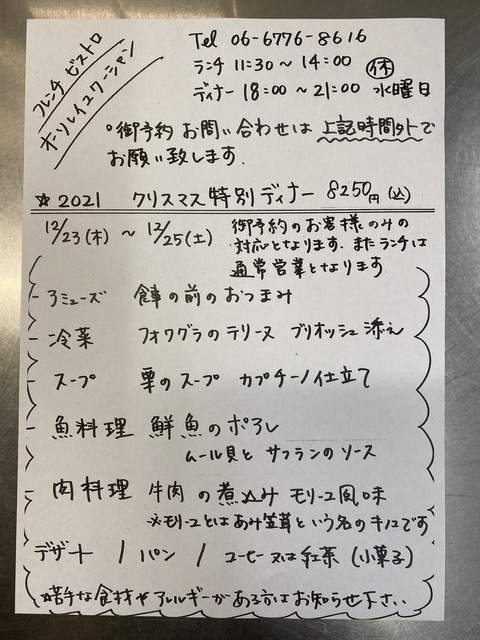 フレンチ ビストロ
オ・ソレイユクーシャン
Tel 06-6776-8616
ランチ 11:30〜14:00 休
ディナー 18:00〜21:00 水曜日
○御予約 お問い合わせは 上記時間外で
お願い致します.
☆2021 クリスマス特別ディナー 8250円(込)
12/23(木) 〜 12/25(土)
御予約のお客様のみの
対応となります. またランチは
通常営業となります
アミューズ 食事の前のおつまみ
冷菜 フォワグラのテリーヌ ブリオッシュ添え
スープ 栗のスープ カプチーノ仕立て
魚料理 鮮魚のポワレ
ムール貝と サフランのソース
肉料理 牛肉の煮込み モリーユ風味
※モリーユとはあみ笠茸という名のキノコです
デザート / パン / コーヒー又は紅茶 (小菓子)
☆苦手な食材やアレルギーがある方はお知らせ下さい..